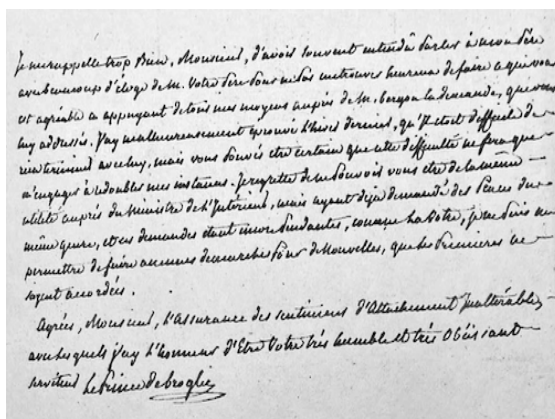 Je me rappelle trop Bien, Monsieur, d'avoir souvent entendu Parler à mon Père
avec beaucoup d'éloge de M. Votre Père Pour ne Pas me trouver heureux de faire a qui vous
est agréable en appuyant de tous mes moyens auprès de M. la demande, que vous
luy addressés. J'ay malheureusement éprouvé l'hiver dernier, qu'Il etoit difficile de
rien terminer avec luy, mais vous Pouvés etre certain que cette difficulté ne fera que
m'engager à redoubler mes instances. Je regrette de ne Pouvoir vous etre de la même
utilité auprès du Ministre de l'Intérieur, mais ayant déja demandé des Places du
même genre, et ces demandes etant encore Pendantes, comme la votre, je ne Puis me
permettre de faire aucunes demarches Pour de Nouvelles, que les Premieres ne
soyent accordées.
Agrées, Monsieur, l'Assurance des sentimens d'Attachement Inaltérable,
avec les quels j'ay l'honneur d'Etre Votre très humble et très Obéissant
serviteur Le Prince de broglie